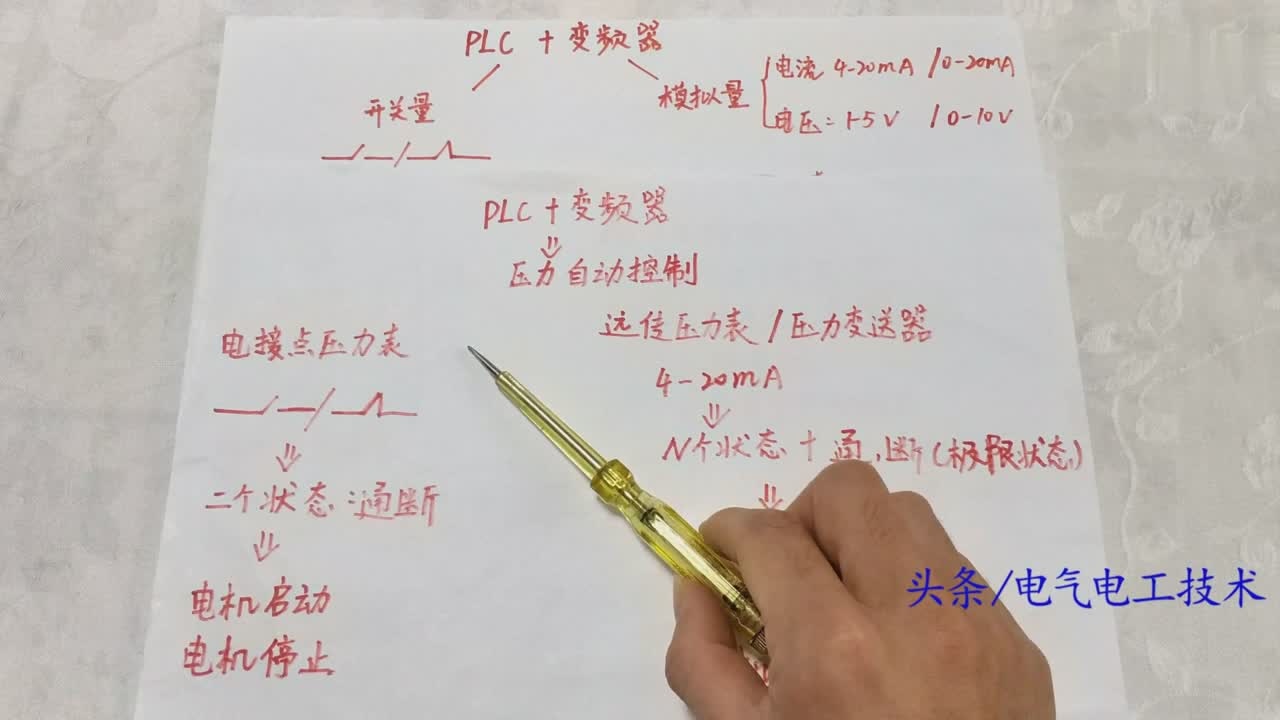 PLC + 变频器
开关量
模拟量
电流 4-20mA / 0-20mA
电压: 1-5V / 0-10V
PLC + 变频器
压力自动控制
电接点压力表
远传压力表 / 压力变送器
4-20mA
二个状态:通断
N个状态 + 通、断(极限状态)
电机启动
电机停止
头条/电气电工技术